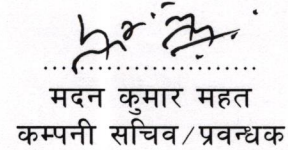 मदन कुमार महत
कम्पनी सचिव/प्रवन्धक